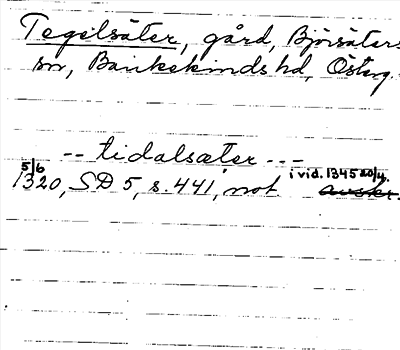 Tegelsäter, gård, Björsäters
sn, Bankekinds hd, Östg.
-- tidalsæter ---
5/6 1320, SD 5, s. 441, not i vid. 1345 20/4. avskr.